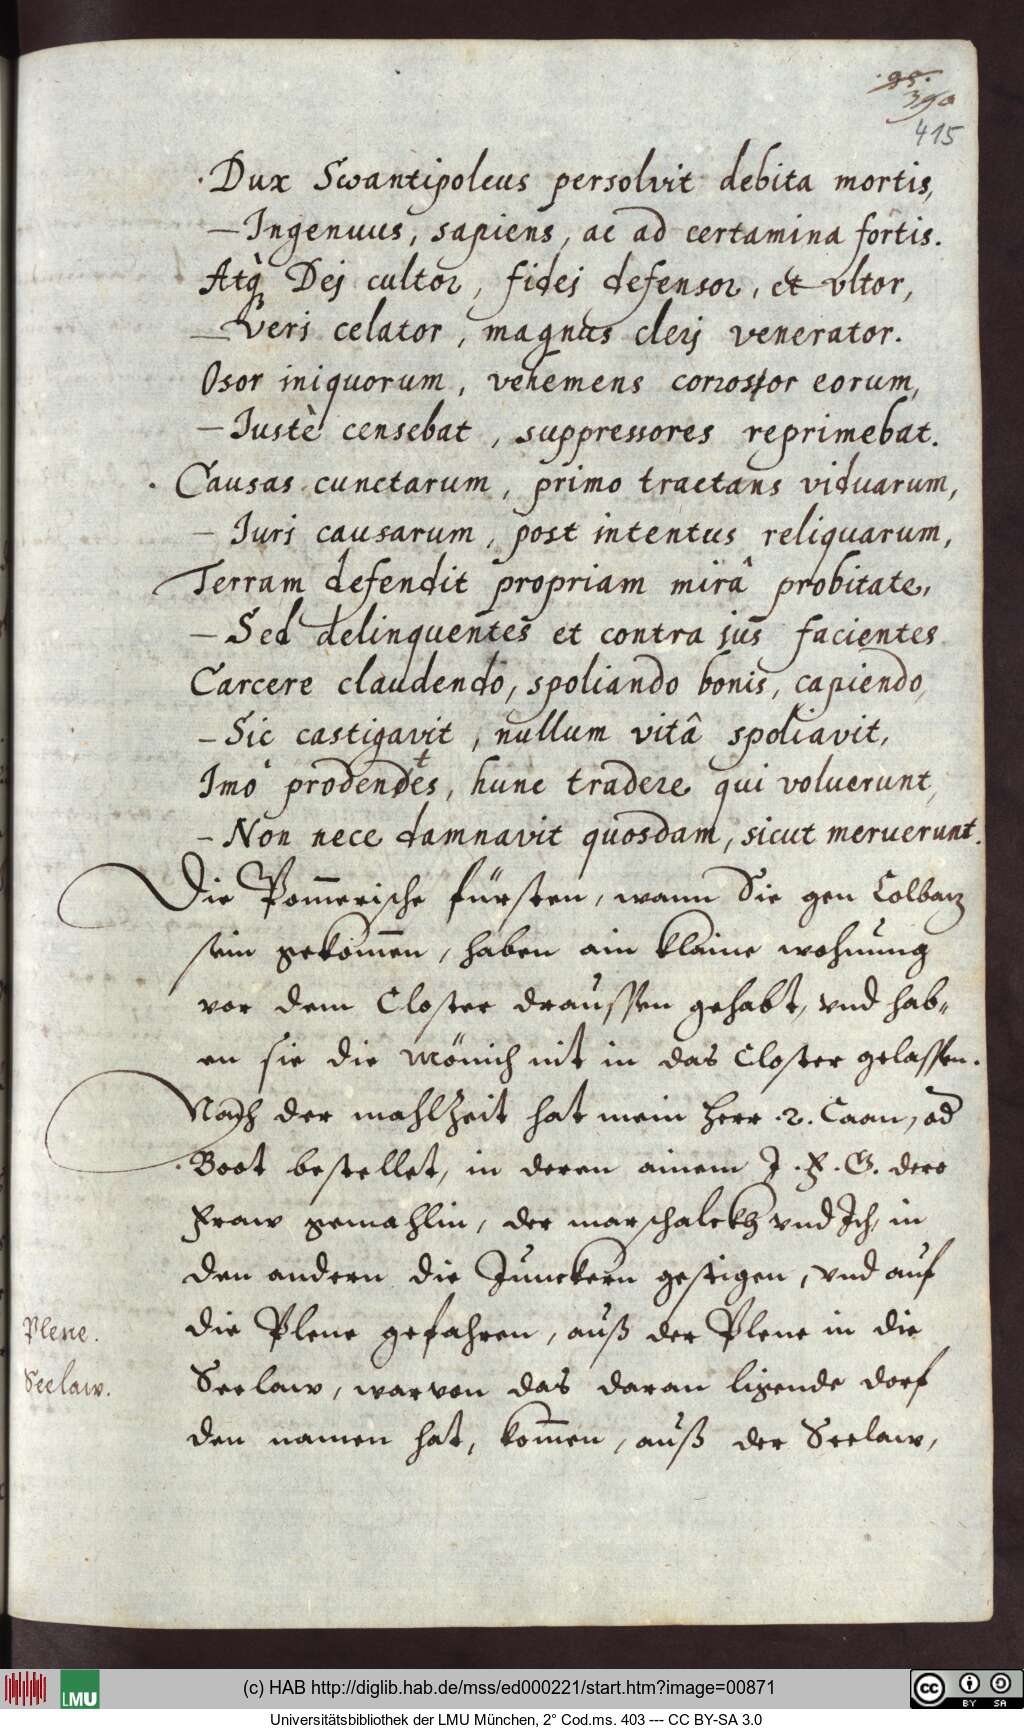 95.
390
415
Dux Swantipoleus persolvit debita mortis,
— Ingenuus, sapiens, ac ad certamina fortis.
Atq; Dej cultor, fidej defensor, et vltor,
— Veri celator, magnus clerj venerator.
Osor iniquorum, vehemens corrosor eorum,
— Iustè censebat, suppressores reprimebat.
Causas cunctarum, primo tractans viduarum,
— Iuri causarum, post intentus reliquarum,
Terram defendit propriam mirâ probitate,
— Sed delinquentes et contra jus facientes
Carcere claudendo, spoliando bonis, capiendo,
— Sic castigavit, nullum vitâ spoliavit,
Imò prodentes, hunc tradere qui voluerunt,
— Non nece damnavit quosdam, sicut meruerunt.
Die Pom̃erische fürsten, wann Sie gen Colbaz
sein gekom̃en, haben ain klaine wohnung
vor dem Closter draussen gehabt, vnd hab-
en sie die Mönich nit in das Closter gelassen.
Nach der mahlzeit hat mein Herr .2. Caan, od
Boot bestellet, in deren ainem J. F. G. dero
Fraw gemahlin, der marschalckh vnd Ich, in
den andern die Junckern gestigen, vnd auf
die Plene gefahren, auß der Plene in die
Seelaw, warvon das daran ligende dorf
den namen hat, kom̃en, auß der Seelaw,
Plene.
Seelaw.
LMU
(c) HAB http://diglib.hab.de/mss/ed000221/start.htm?image=00871
cc BY SA
Universitätsbibliothek der LMU München, 2° Cod.ms. 403 --- CC BY-SA 3.0